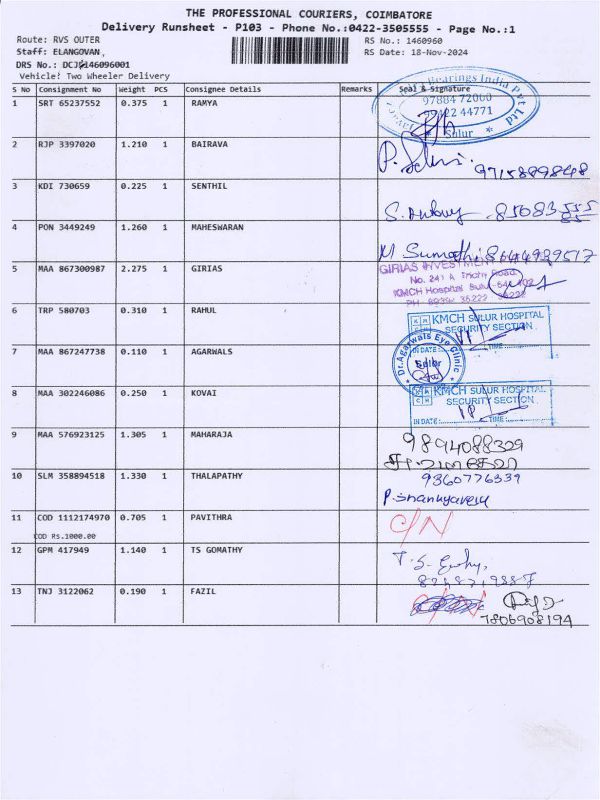 THE PROFESSIONAL COURIERS, COIMBATORE
Delivery Runsheet - P103 - Phone No.:0422-3505555 - Page No.:1
Route: RVS OUTER
RS No.: 1460960
Staff: ELANGOVAN,
RS Date: 18-Nov-2024
DRS No.:
Vehicle: Two Wheeler Delivery
S No Consignment No Weight PCS Consignee Details Remarks Seal & Signature
Bearings India Pvt Ltd
97884 72000
44771
Sulur
1 SRT 65237552 0.375 1 RAMYA
2 RJP 3397020 1.210 1 BAIRAVA
9715889848
3 KDI 730659 0.225 1 SENTHIL
4 PON 3449249 1.260 1 MAHESWARAN
5 MAA 867300987 2.275 1 GIRIAS
GIRIAS
No. 241 A Trichy Road
KMCH Hospital Sulur
6 TRP 580703 0.310 1 RAHUL
KMCH SULUR HOSPITAL
SECURITY SECTION
IN DATE:
TIME
7 MAA 867247738 0.110 1 AGARWALS
Dr.Agarwals Eye Clinic
Sulur
8 MAA 302246086 0.250 1 KOVAI
KMCH SULUR HOSPITAL
SECURITY SECTION
IN DATE:
TIME:
9 MAA 576923125 1.305 1 MAHARAJA
9894088329
10 SLM 358894518 1.330 1 THALAPATHY
9360776339
11 COD 1112174970 0.705 1 PAVITHRA
C/N
COD Rs.1000.00
12 GPM 417949 1.140 1 TS GOMATHY
13 TNJ 3122062 0.190 1 FAZIL
7806908194